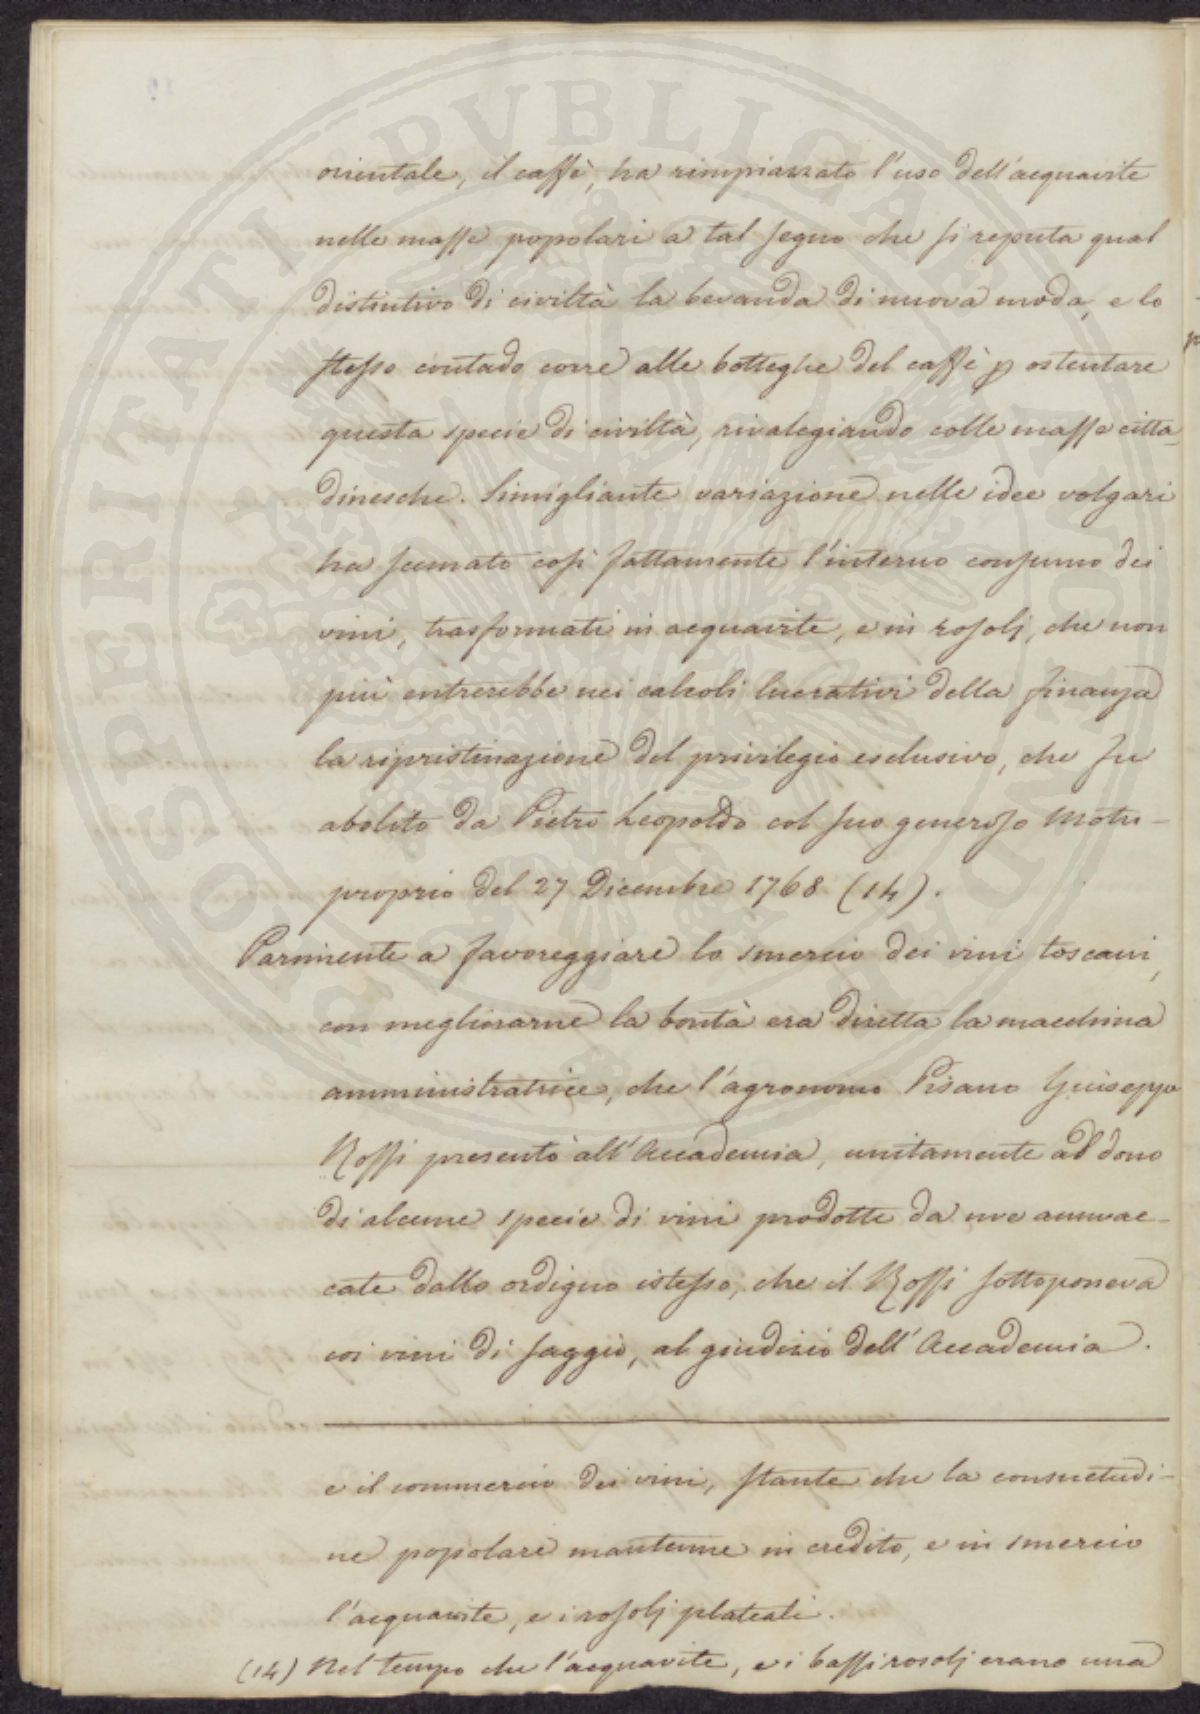 orientale, il caffè, ha rimpiazzato l'uso dell'acquavite
nelle masse popolari a tal segno che si reputa qual
distintivo di civiltà la bevanda di nuova moda, e lo
stesso contado corre alle botteghe del caffè p ostentare
questa specie di civiltà, rivalegiando colle masse citta-
dinesche. Simigliante variazione nelle idee volgari
ha scemato così fattamente l'interno consumo dei
vini, trasformati in acquavite, e in rosolj, che non
più entrerebbe nei calcoli lucrativi della finanza
la ripristinazione del privilegio esclusivo, che fu
abolito da Pietro Leopoldo col suo generoso Motu-
proprio del 27 Dicembre 1768 (14).
Parimente a favoreggiare lo smercio dei vini toscani,
con megliorarne la bontà era diretta la macchina
amministratrice, che l'agronomo Pisano Giuseppe
Rossi presentò all'Accademia, unitamente al dono
di alcune specie di vini prodotte da uve ammac-
cate dallo ordigno istesso, che il Rossi sottoponeva
coi vini di saggio, al giudizio dell'Accademia.
e il commercio dei vini, stante che la consuetudi-
ne popolare mantenne in credito, e in smercio
l'acquavite, e i rosolj plateali.
(14) Nel tempo che l'acquavite, e i bassi rosolj erano una
PROSPERITATI PVBLICAE